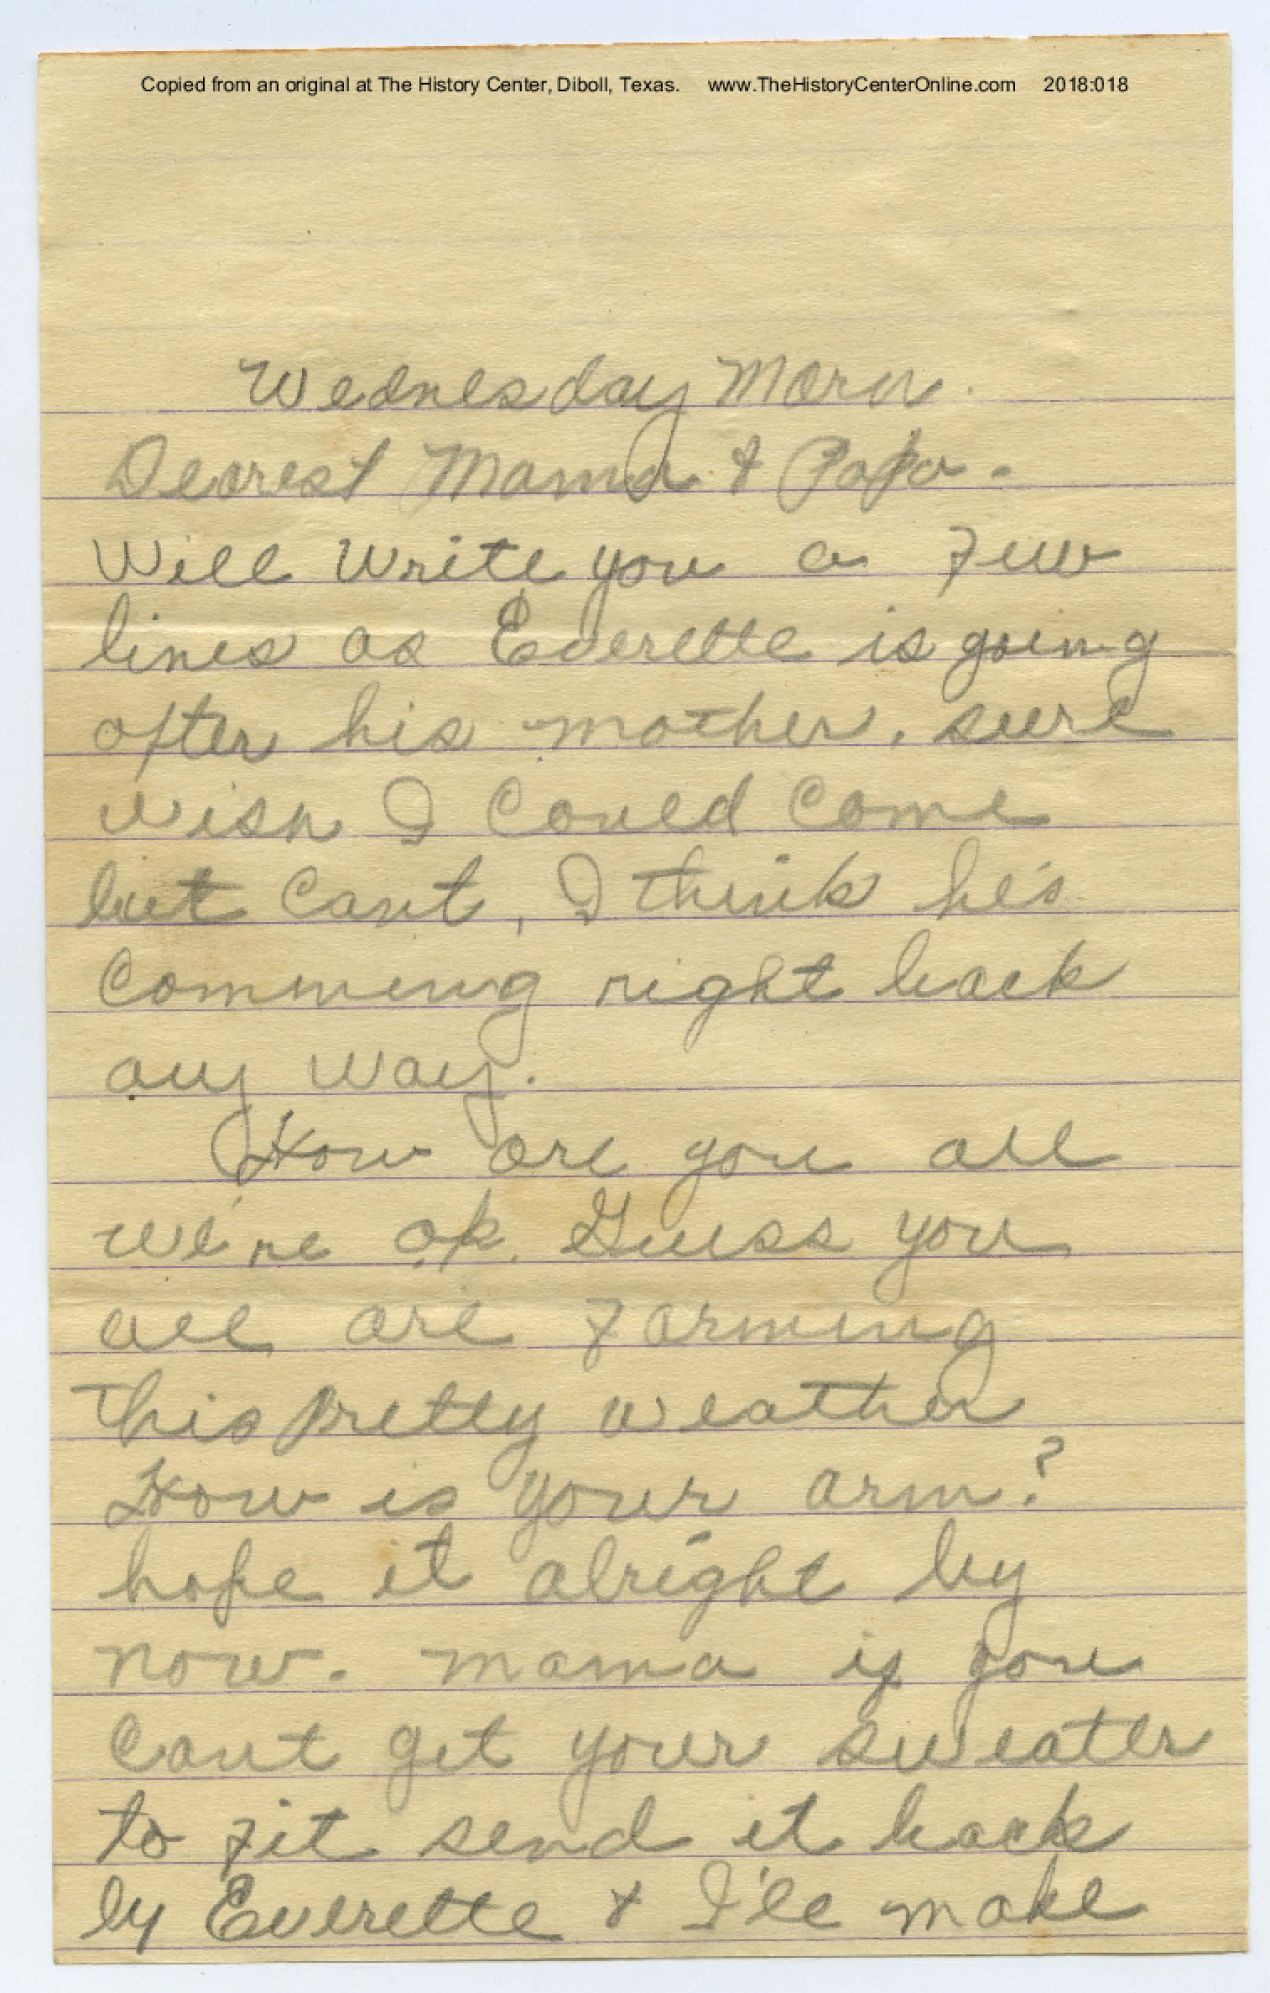 Copied from an original at The History Center, Diboll, Texas. www.TheHistoryCenterOnline.com 2018:018
Wednesday Morn.
Dearest Mama & Papa -
Will write you a few
lines as Everette is going
after his mother, sure
wish I could come
but cant, I think he's
comming right back
any way.
How are you all
we're ok. Guess you
all are farming
this pretty weather
How is your arm?
hope it alright by
now. Mama if you
cant get your sweater
to fit send it back
by Everette & I'le make